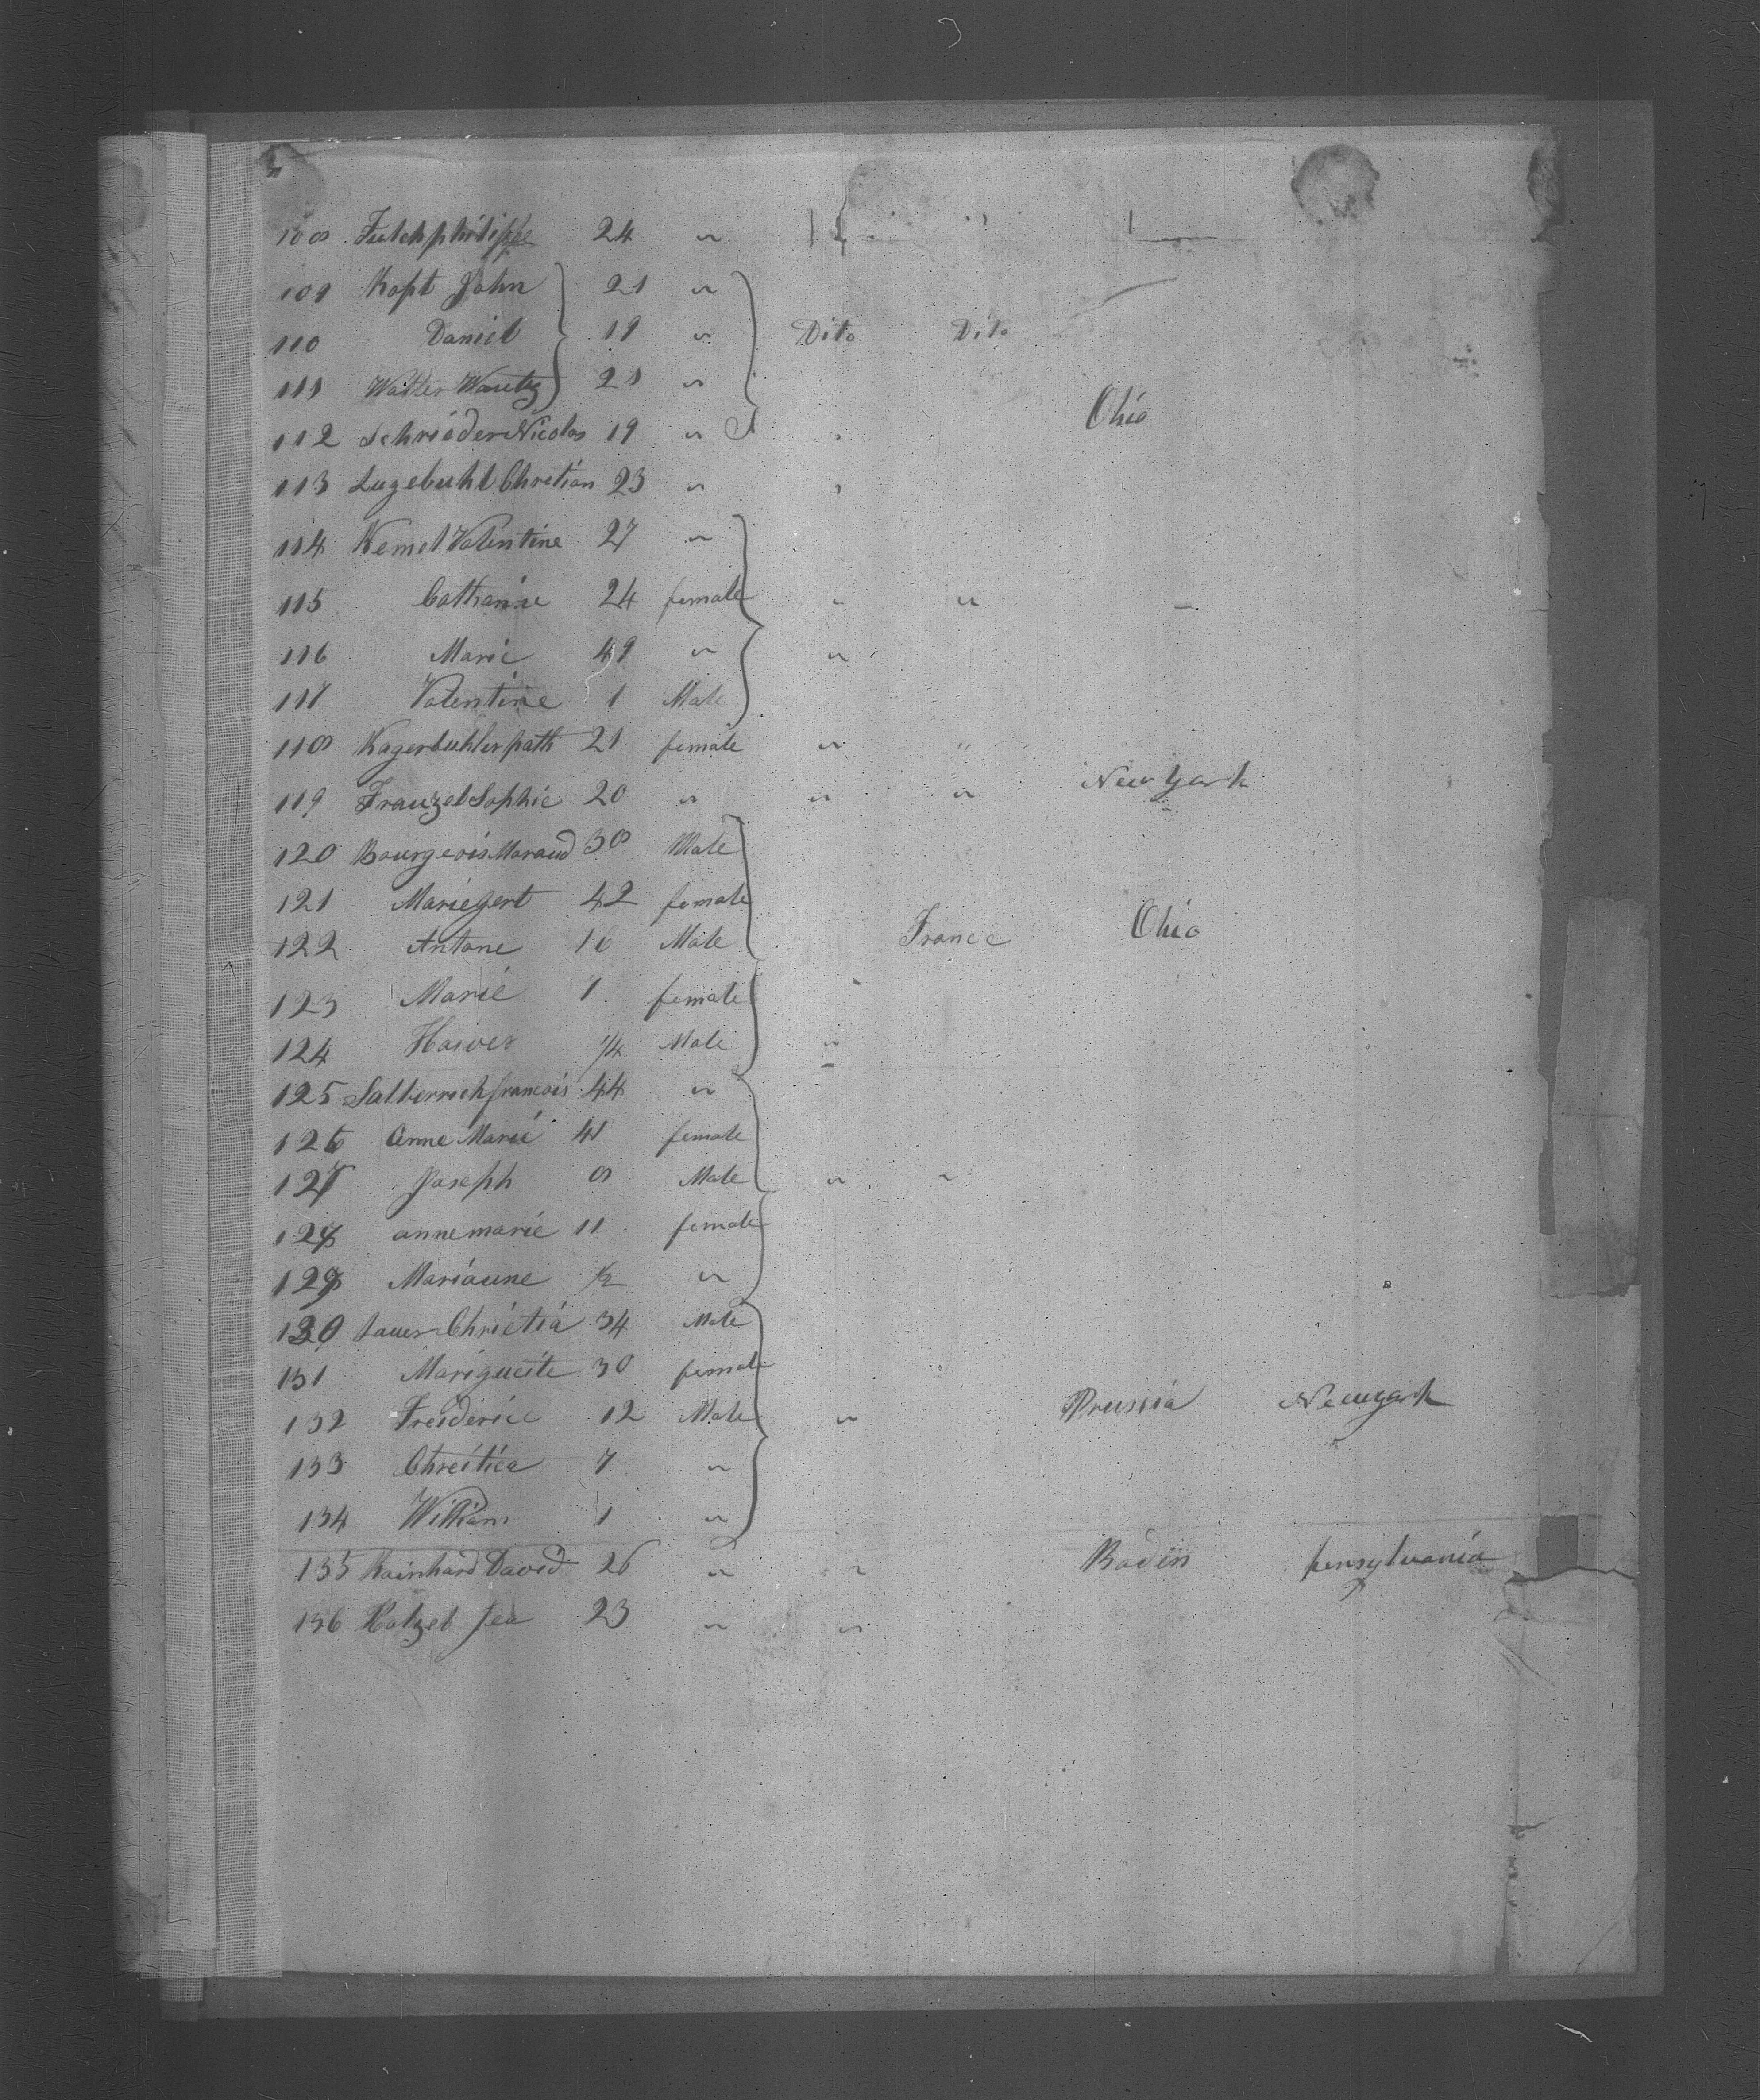 108 Fulchphilippe 24 "
109 Kopt John 21 "
110 Daniel 19 " Dito Dito
111 Walter Wantz 21 "
Ohio
112 Schrieder Nicolas 19 "
113 Lugebuhl Chretian 23 "
114 Kemel Valentine 27 "
115 Catharine 24 female " "
116 Marie 49 " "
117 Valentine 1 Male
118 Kagerbuhler path 21 female " "
119 Frauzel Sophie 20 " " " New York
120 Bourgeois Moraud 38 Male
121 Mariegert 42 female
122 Antone 16 Male France Ohio
123 Marie 7 female
124 3/4 Male "
125 Salberrich francois 44 "
126 Anne Marie 41 female
127 Joseph 8 Male " "
128 annemarie 11 female
129 Mariaune 1/2 "
130 Lauer Chrietia 34 Male
131 Marigueite 30 female
132 Freiderice 12 Male " Prussia Newyork
133 Chreitica 7 "
134 William 1 "
135 Rainhard David 26 " " Baden pensylvania
136 Hotzel Jea 23 " "